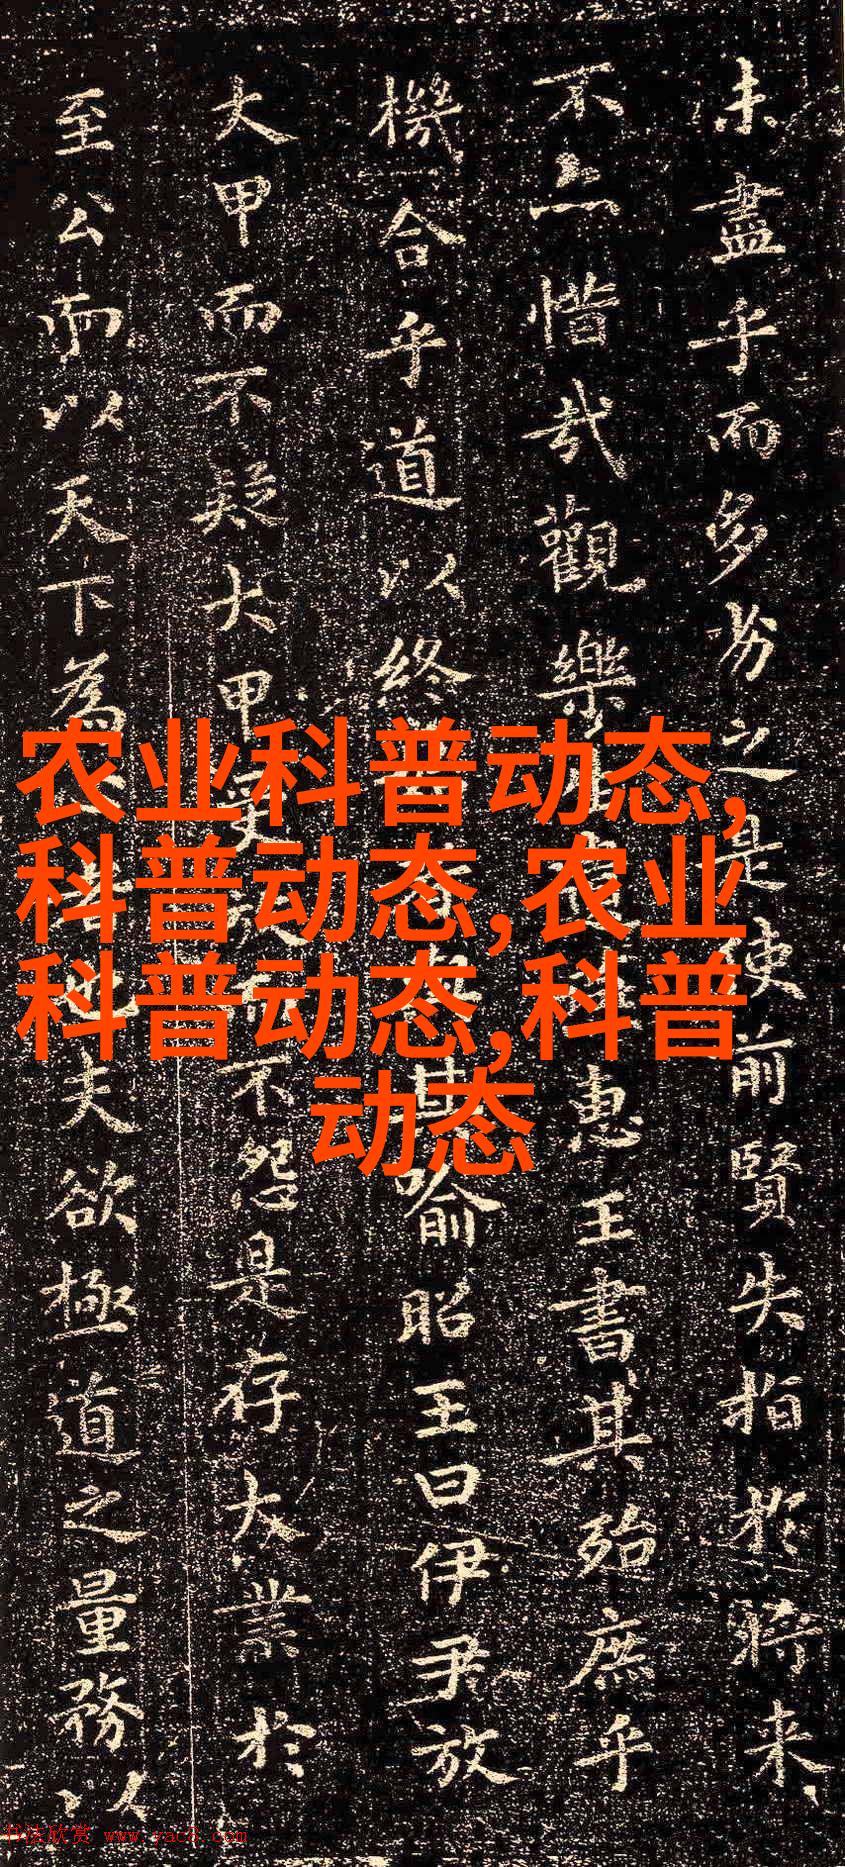 未盡乎而多劣之是使前賢失指於將来
不亦惜哉觀樂惠王書其殆庶乎
機合乎道以終其喻昭王曰伊尹放
大甲而不疑大甲不怨是存大業於
至公而以天下為也夫欲極道之量務以
农业科普动态,
科普动态,农业
科普动态,科普
动态
书法欣赏 www.yac8.com